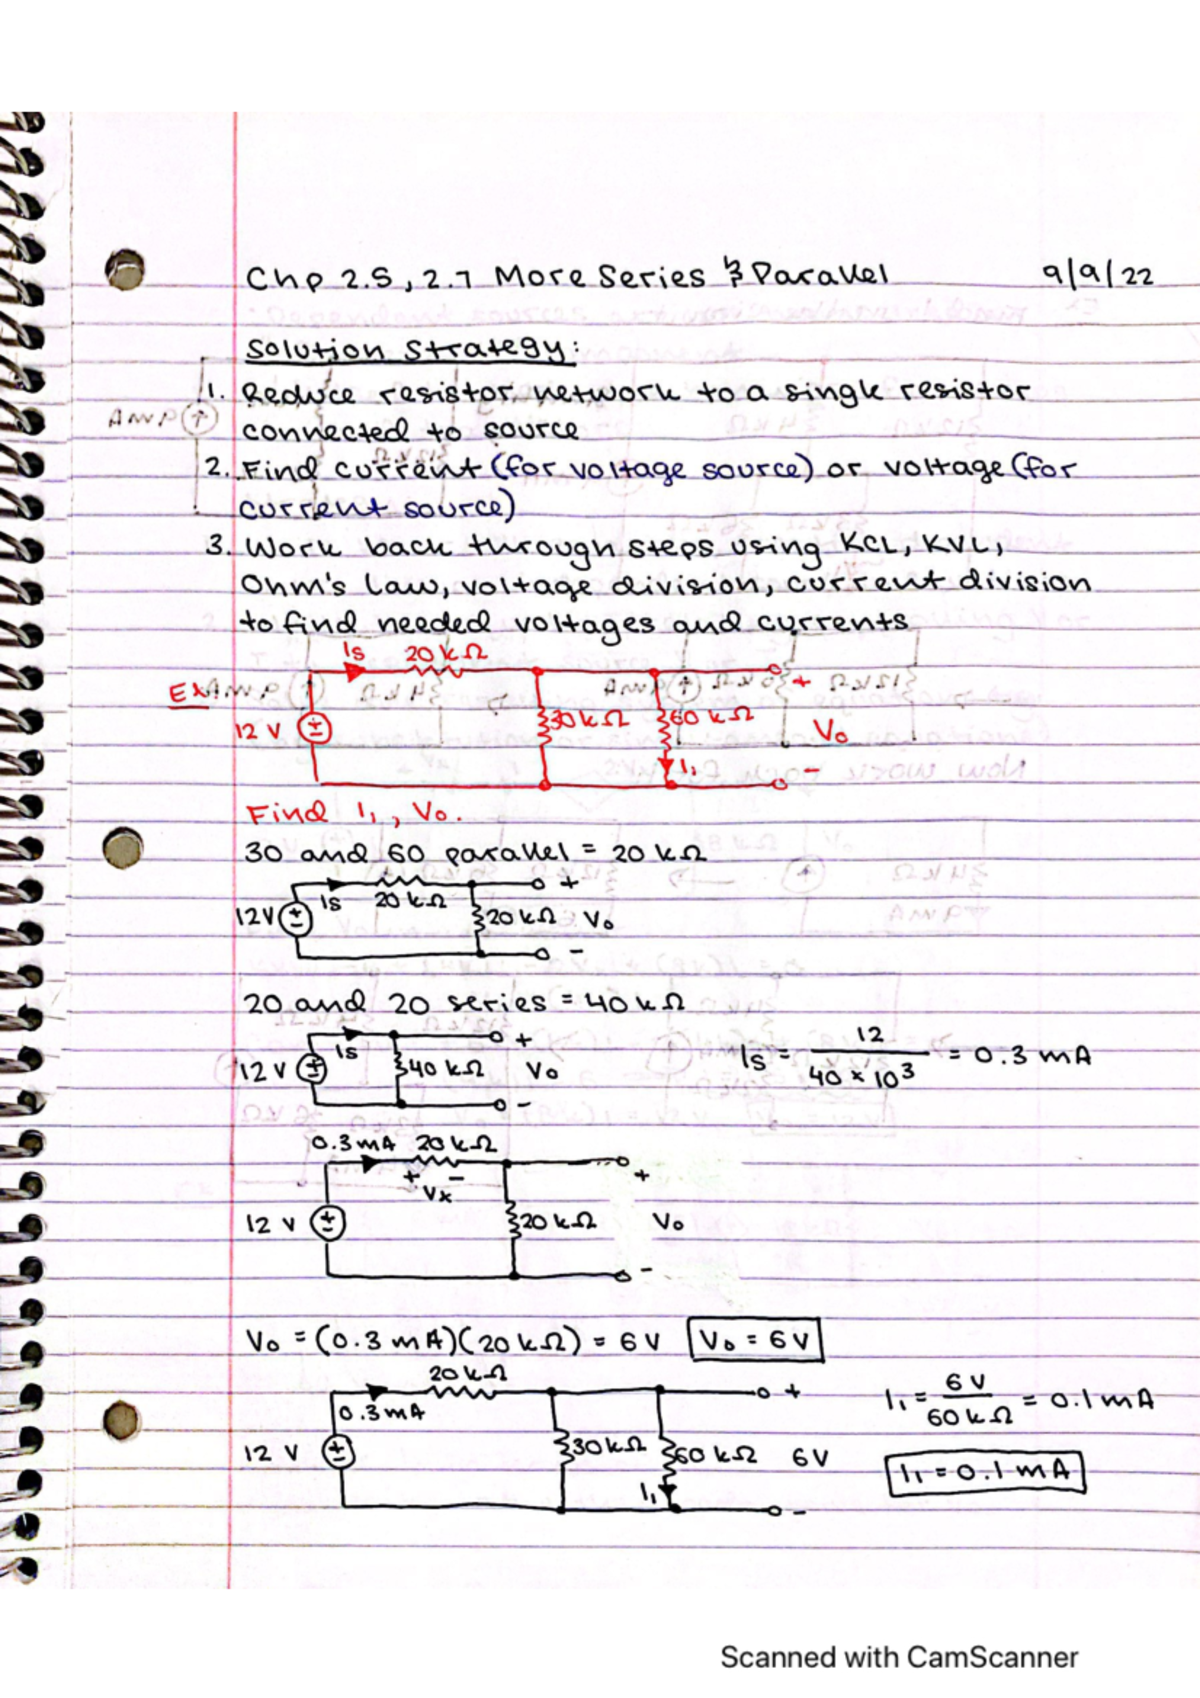 Chp 2.5, 2.7 More Series & Parallel 9/9/22
Solution Strategy:
1. Reduce resistor network to a single resistor
connected to source
2. Find current (for voltage source) or voltage (for
current source)
3. Work back through steps using KCL, KVL,
Ohm's law, voltage division, current division
to find needed voltages and currents
Is 20 kΩ
Ex
12 V ± 30 kΩ 60 kΩ + Vo -
I₁
Find I₁, Vo.
30 and 60 parallel = 20 kΩ
Is 20 kΩ +
12V ± 20 kΩ Vo
-
20 and 20 series = 40 kΩ
Is +
12 V ± 40 kΩ Vo
-
Is = 12 / 40 × 10³ = 0.3 mA
0.3 mA 20 kΩ
+ Vx - +
12 V ± 20 kΩ Vo
-
Vo = (0.3 mA)(20 kΩ) = 6 V Vo = 6 V
20 kΩ
0.3 mA +
12 V ± 30 kΩ 60 kΩ 6V
I₁ -
I₁ = 6 V / 60 kΩ = 0.1 mA
I₁ = 0.1 mA
Scanned with CamScanner